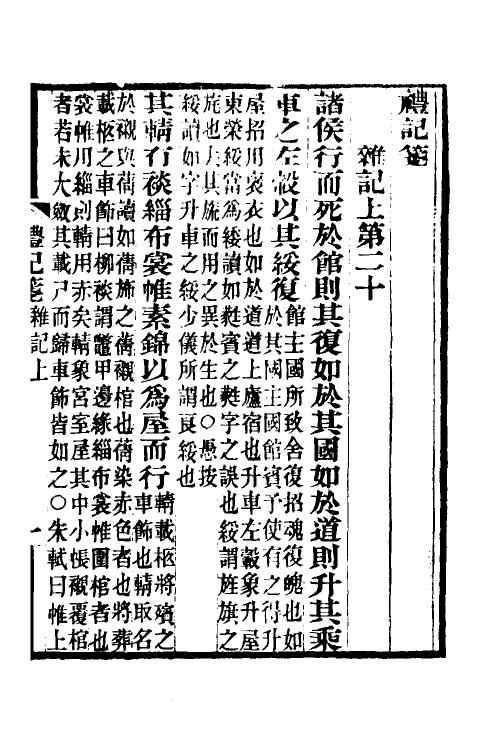 禮記箋
雜記上第二十
諸侯行而死於館則其復如於其國如於道則升其乘
車之左轂以其綏復館主國所致舍復招魂復魄也如
於其國主國館賓予使有之得升
屋招用褒衣也如於道道上廬宿也升車左轂象升屋
東榮綏當為緌讀如蕤賓之蕤字之誤也綏謂旌旗之
旄也去其旒而用之異於生也○愚按
綏讀如字升車之綏少儀所謂良綏也
其輤有裧緇布裳帷素錦以為屋而行輤載柩將殯之
車飾也輤取名
於櫬與蒨讀如蒨旆之蒨櫬棺也蒨染赤色者也將葬
載柩之車飾曰柳裧謂鼈甲邊緣緇布裳帷圍棺者也
裳帷用緇則輤用赤矣輤象宮室屋其中小帳襯覆棺
者若未大斂其載尸而歸車飾皆如之○朱軾曰帷上
禮記箋雜記上 一